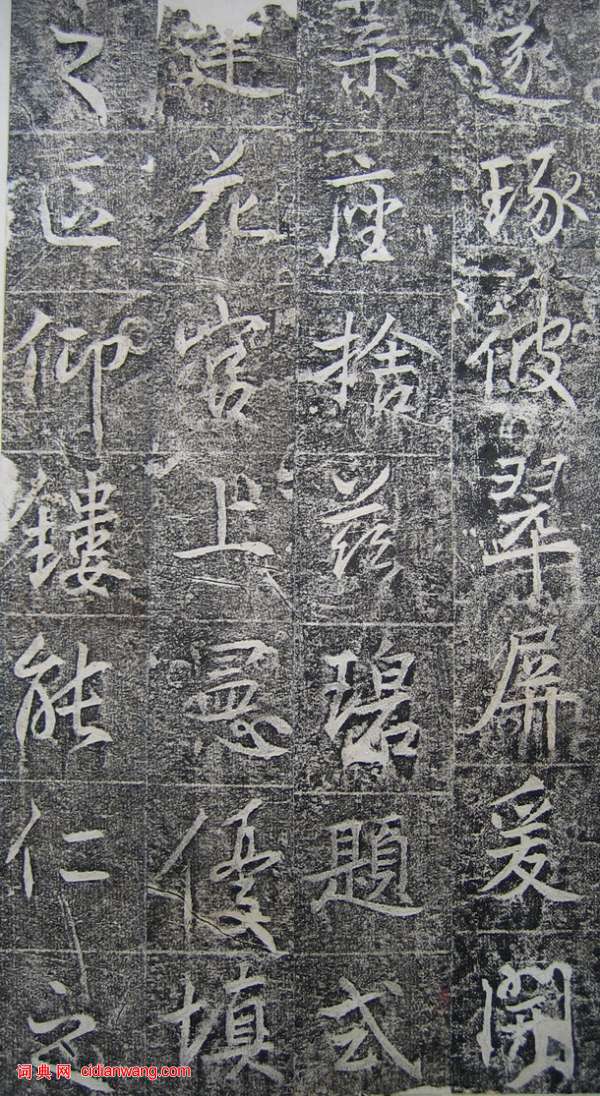 遂琢彼翠屏爰開
葉座捨茲碧題式
建花宮上優填
之區仰鏤能仁之
词典网 cidianwang.com